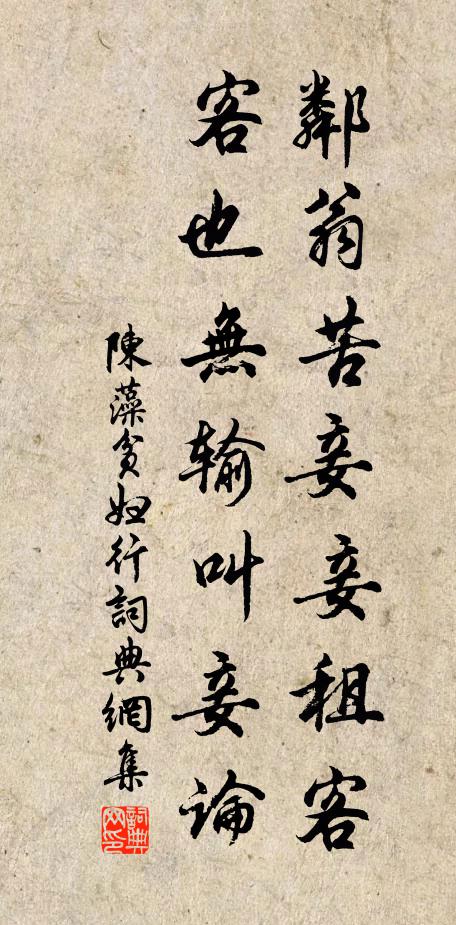 鄰翁苦妾妾租客
客也無輸叫妾論
陳藻貧婦行詞典網集
詞典網印